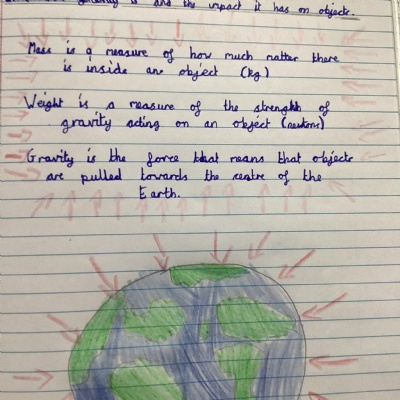 gravity is and the impact it has on objects.
Mass is a measure of how much matter there
is inside an object (kg)
Weight is a measure of the strength of
gravity acting on an object (newtons)
Gravity is the force that means that objects
are pulled towards the centre of the
Earth.